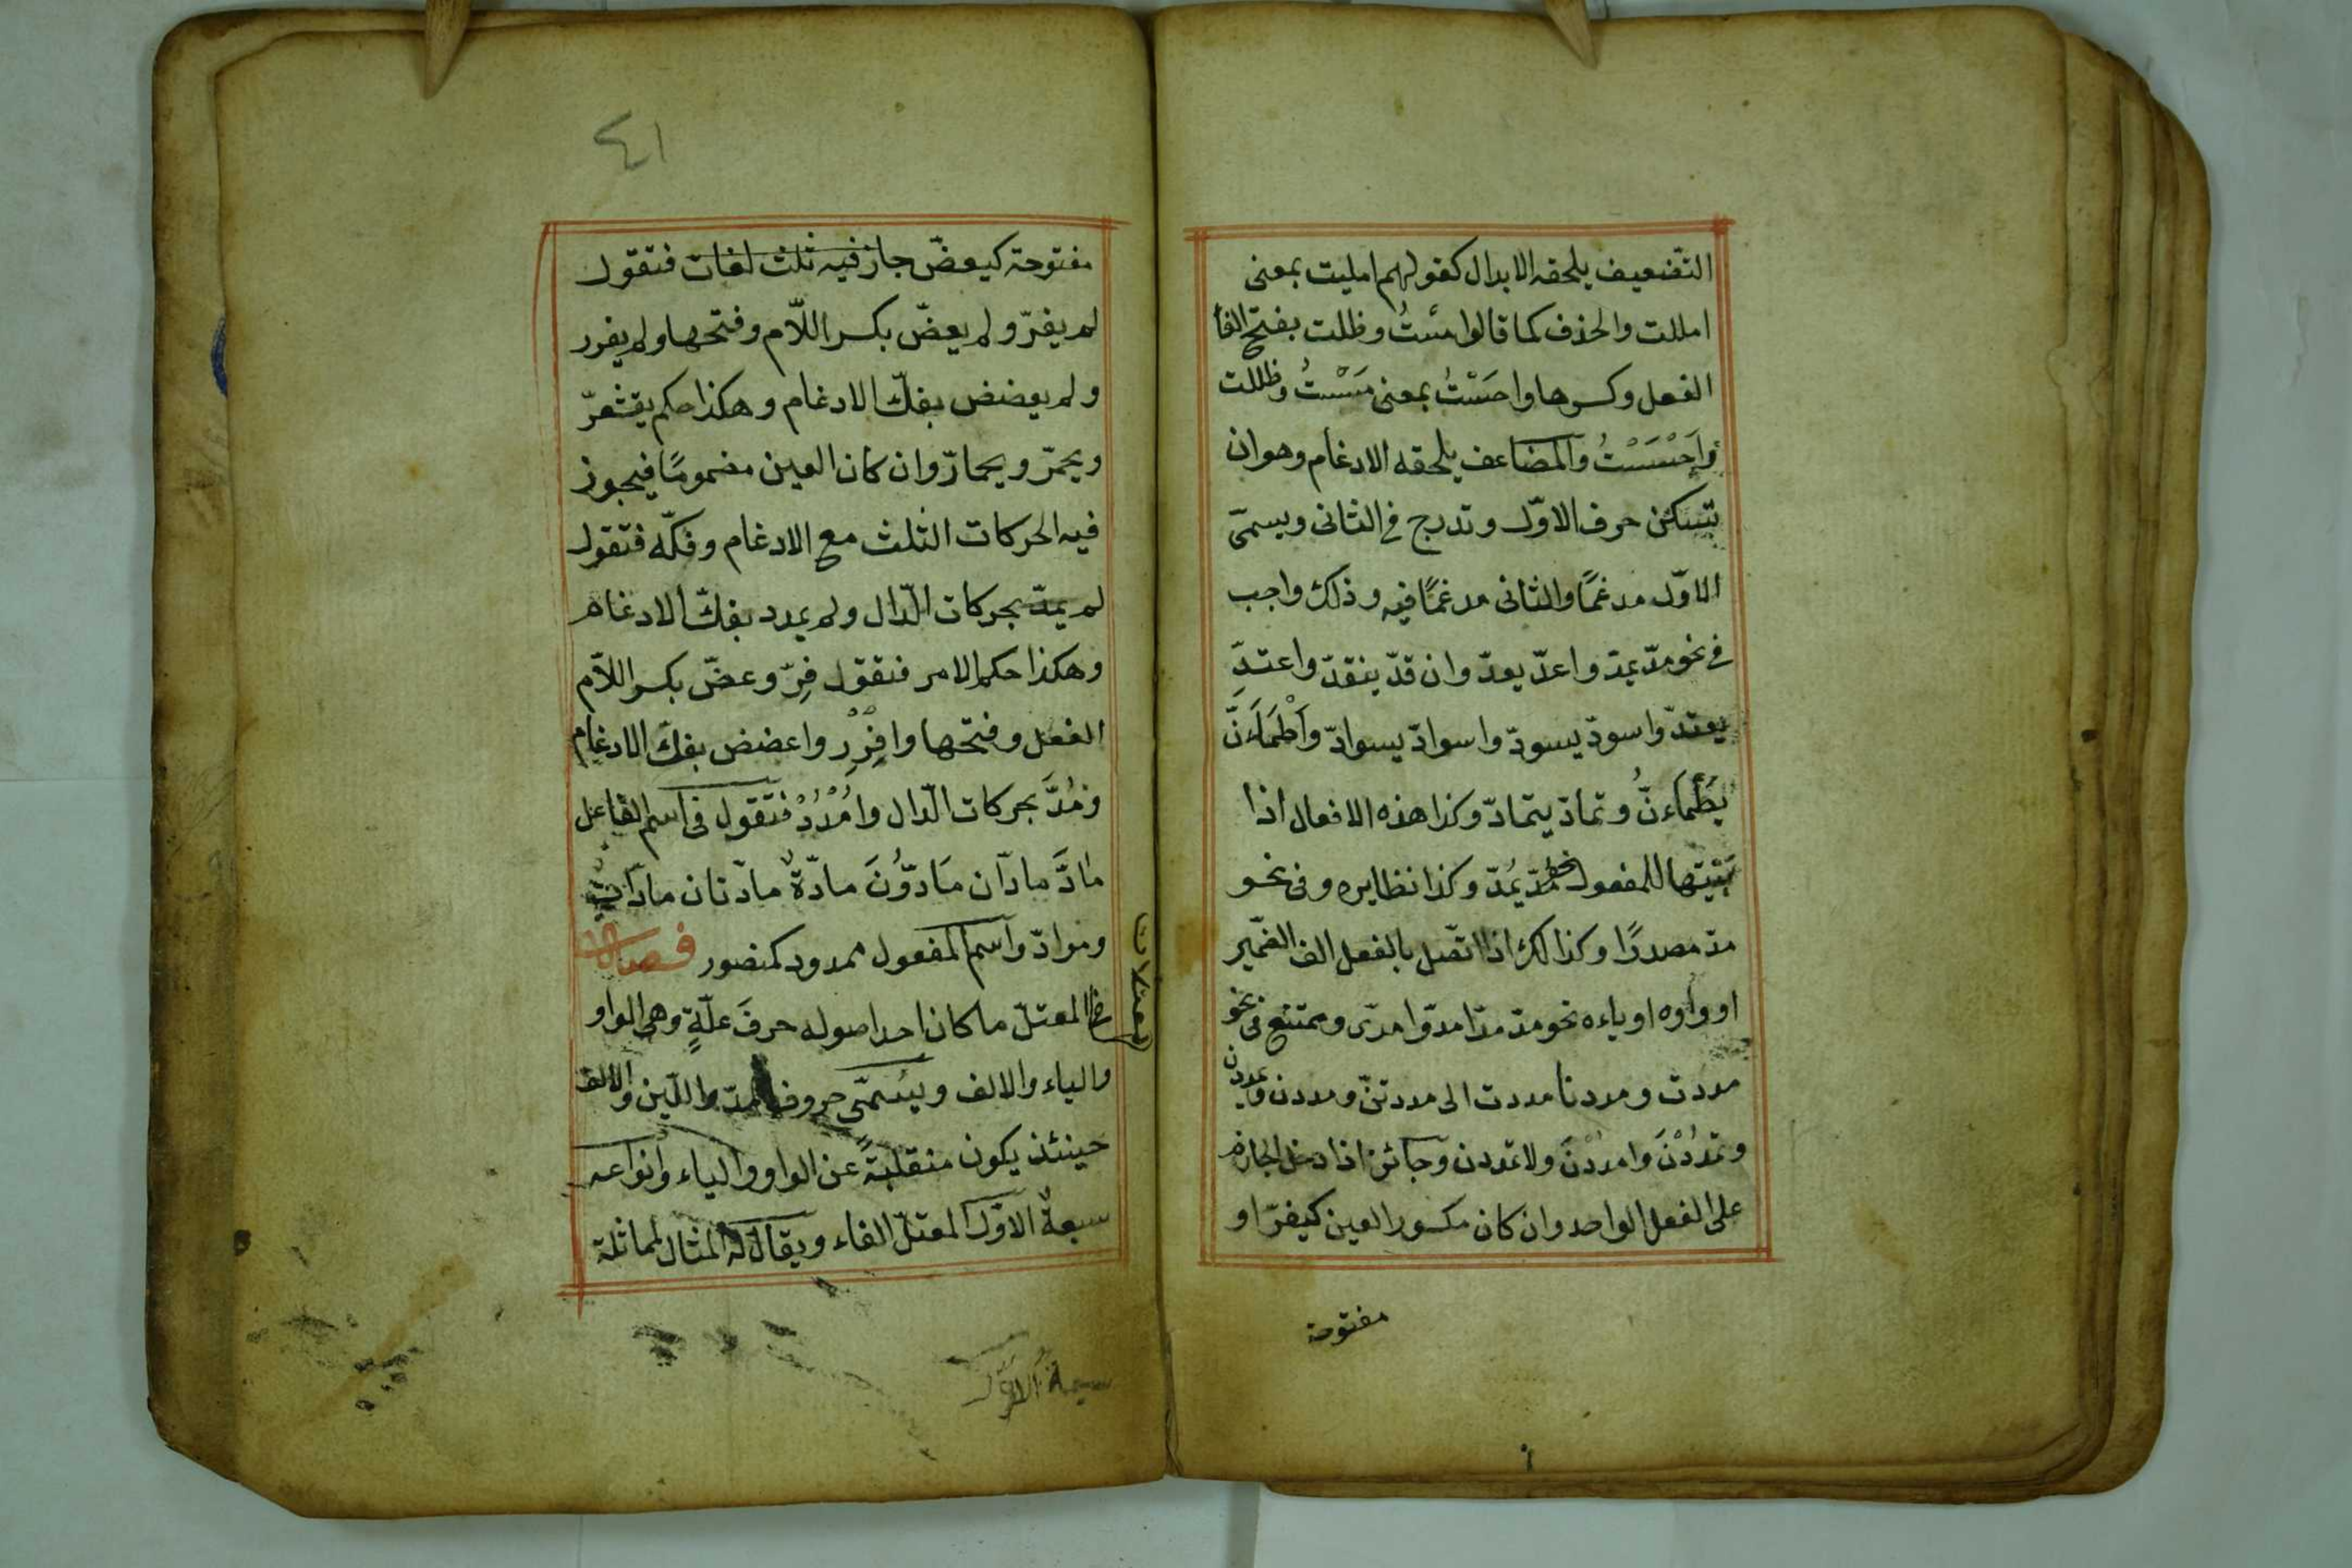 التضعيف يلحقه الابدال كقولهم امليت بمعنى
امللت والحذف كما قالوا مَسْتُ وظلت بفتح الفا
الفعل وكسرها واحَسْتُ بمعنى مَسِسْتُ وظللت
وَاَحْسَسْتُ والمضاعف يلحقه الادغام وهو ان
تسكن حرف الاوّل وتدرج فى الثانى ويسمىّ
الاوّل مدغمًا والثانى مدغمًا فيه وذلك واجب
فى نحو مدّ يمدّ واعدّ يعدّ وان قدّ ينقدّ واعتدّ
يعتدّ واسودّ يسودّ واسوادّ يسوادّ وَاَطْمَاَنَّ
يَطْمَاءنُّ وتمادّ يتمادّ وكذا هذه الافعال اذا
بَنَيْتَها للمفعول نحو مُدّ يُمَدّ وكذا نظايره وفى نحو
مدّ مصدرًا وكذالك اذا اتّصل بالفعل الف الضّمير
او واوه او ياءه نحو مدّ مدّا مدّوا مدّى وممتنع فى نحو
مددت ومددنا مددت الى مددتنّ ومددن ويمددن
وتمدُدْنَ وامددْنَ ولا تمددن وجائز اذا دخل الجازم
على الفعل الواحد وان كان مكسور العين كيفرّ او
مفتوحة
٤١
مفتوحة كيعضّ جاز فيه ثلث لغات فتقول
لم يفرّ ولم يعضّ بكسر اللّام وفتحها ولم يفرر
ولم يعضض بفكّ الادغام وهكذا حكم يقشعرّ
ويحمرّ ويحمارّ وان كان العين مضمومًا فيجوز
فيه الحركات الثلث مع الادغام وفكّه فتقول
لم يمدّ بحركات الّدال ولم يمدد بفكّ الادغام
وهكذا حكم الامر فتقول فِرّ وعضّ بكسر اللّام
الفعل وفتحها وافْرِرْ واعضض بفكّ الادغام
ومُدَّ بحركات الّدال وامْدُدْ فتقول فى اسم الفاعل
مادَّ مادّان مَادّوُنَ مادّةٌ مادّتان مادّاتٌ
وموادّ واسم المفعول ممدود كمنصور فصل
المعتلّ ما كان احد اصوله حرفَ علّةٍ وهى الواو
والياء والالف ويسُمّى حروف المدّ واللّين والالف
حينئذ يكون منقلبةً عن الواو والياء وانواعه
سبعةٌ الاوّل المعتلّ الفاء ويقال له المثال لمماثلة
معتلات
سبعة الاوّل